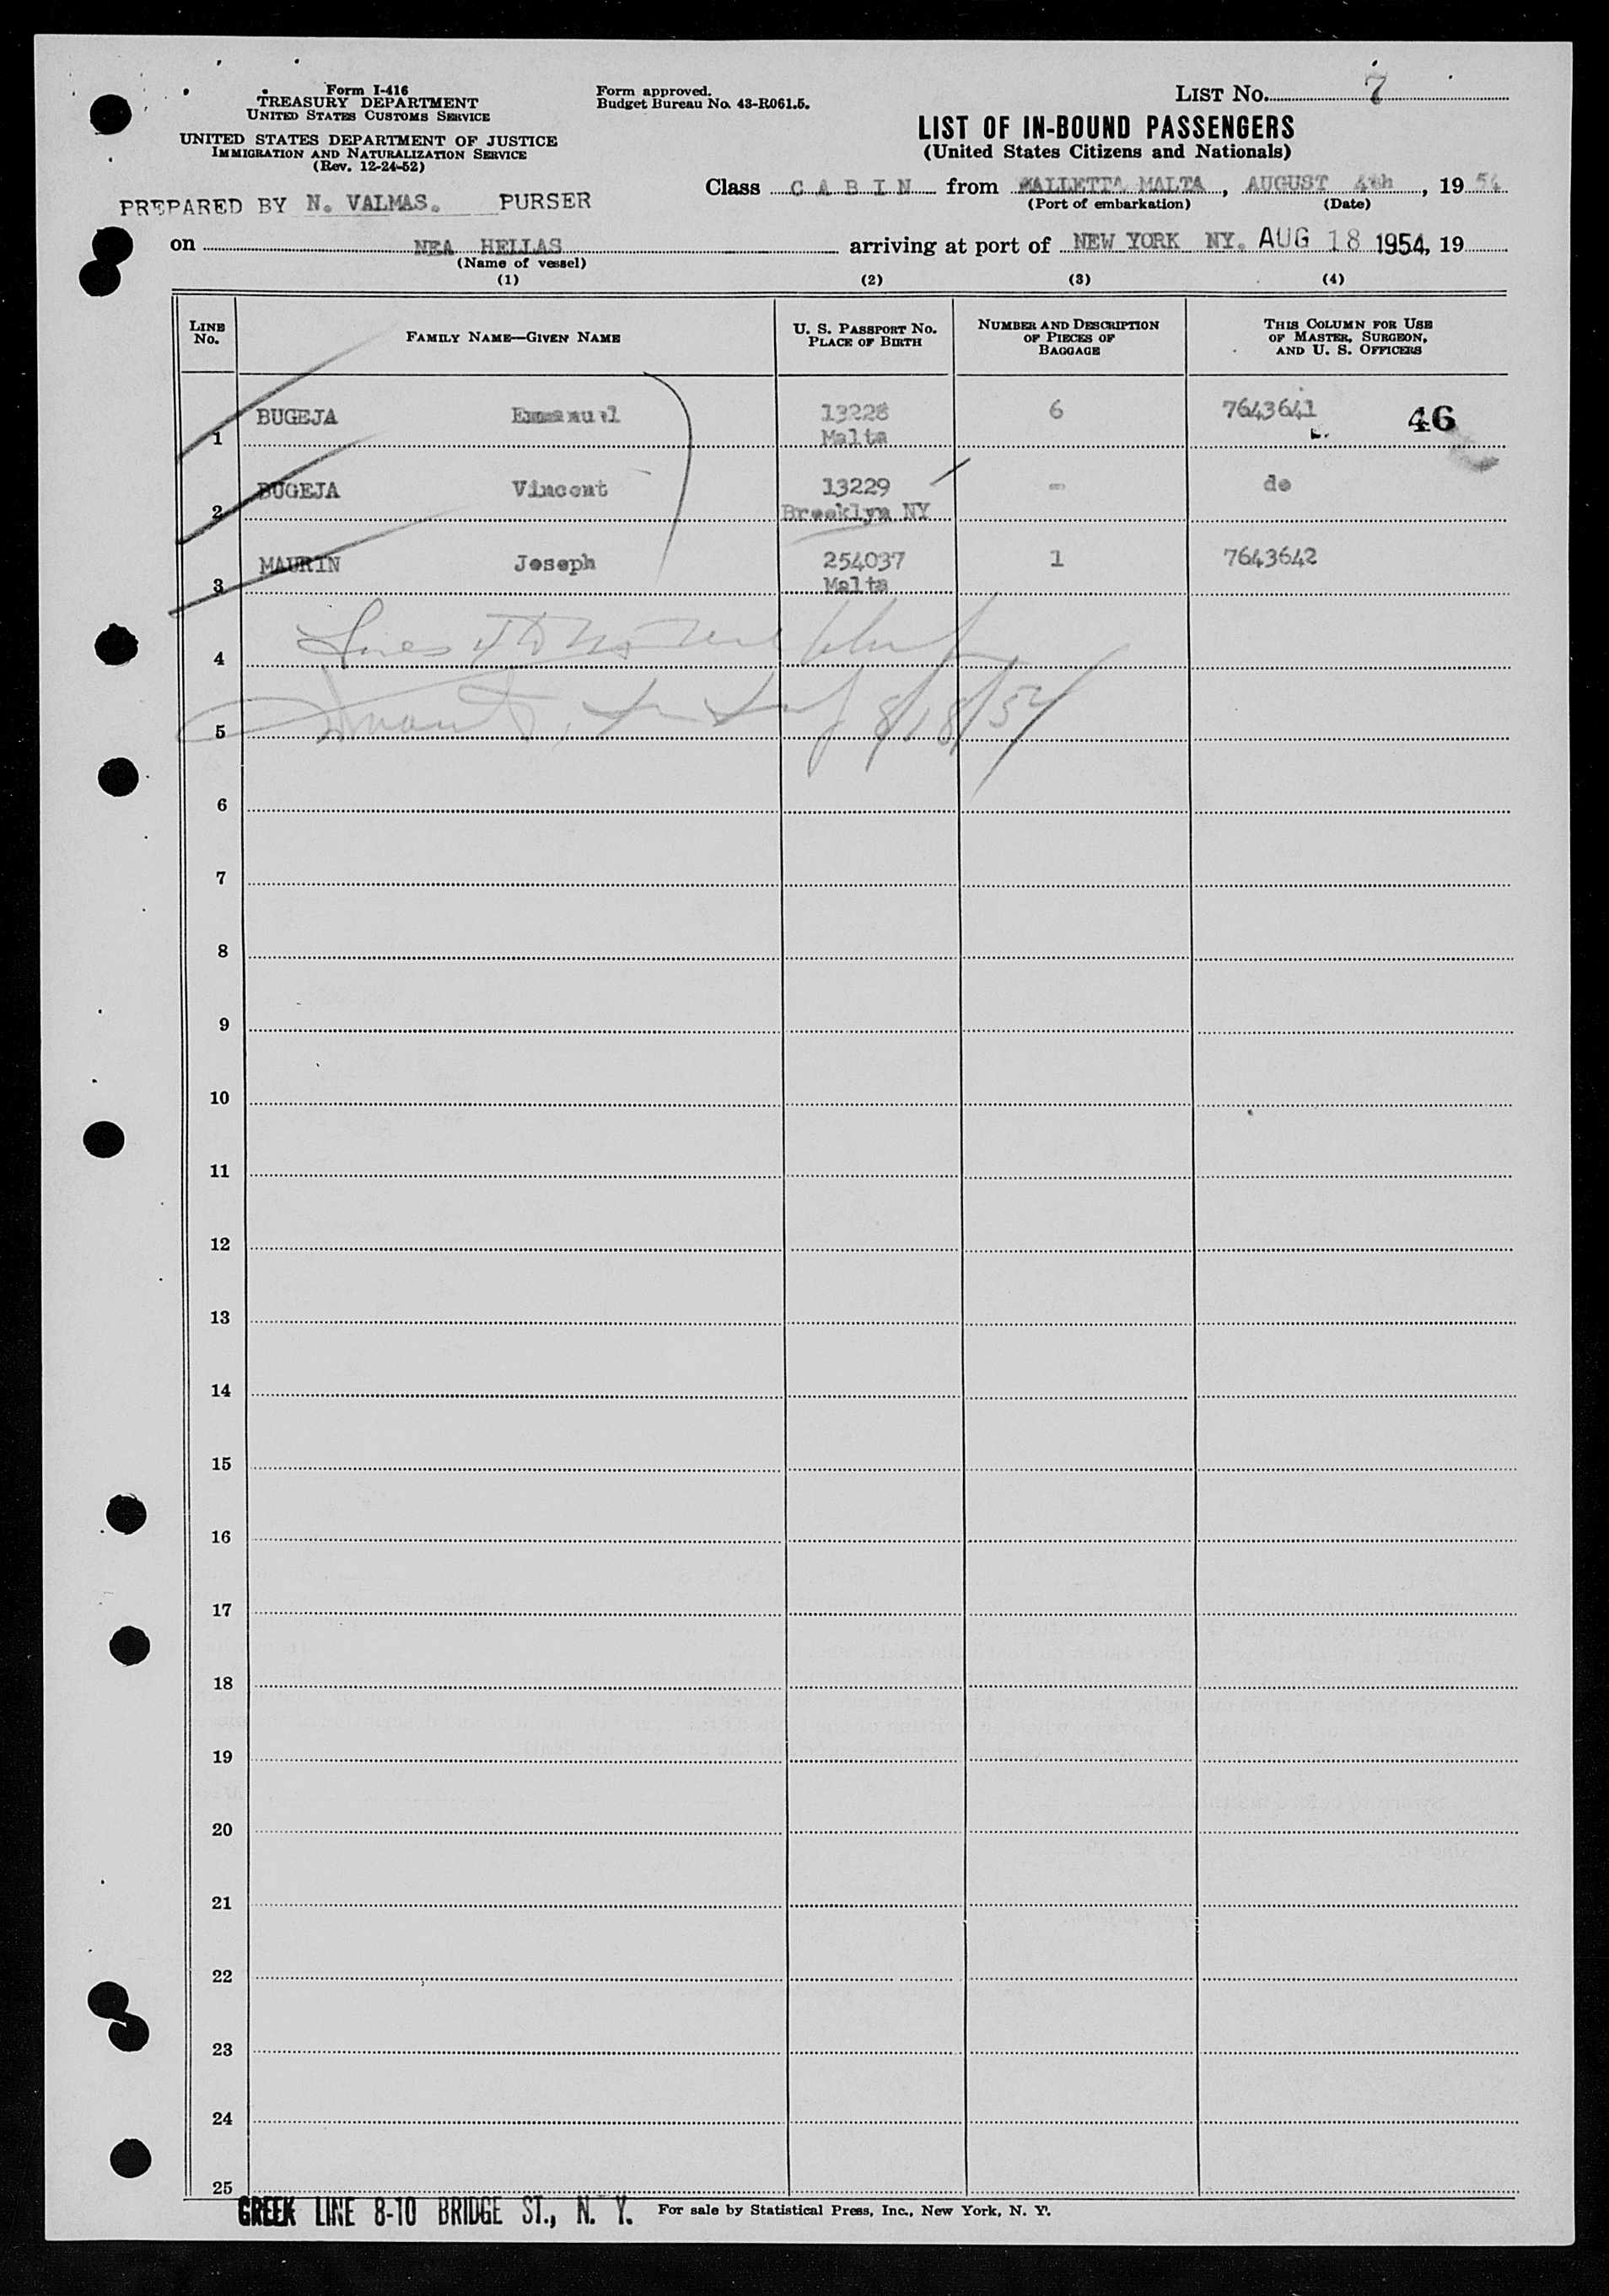 Form I-416
TREASURY DEPARTMENT
UNITED STATES CUSTOMS SERVICE
UNITED STATES DEPARTMENT OF JUSTICE
IMMIGRATION AND NATURALIZATION SERVICE
(Rev. 12-24-52)
Form approved.
Budget Bureau No. 43-R061.5.
LIST No. 7
LIST OF IN-BOUND PASSENGERS
(United States Citizens and Nationals)
Class C A B I N from VALLETTA MALTA, AUGUST 4th, 19 54
(Port of embarkation) (Date)
PREPARED BY N. VALMAS. PURSER
on NEA HELLAS arriving at port of NEW YORK NY. AUG 18 1954, 19
(Name of vessel)
(1) (2) (3) (4)
LINE No. FAMILY NAME—GIVEN NAME U. S. PASSPORT No. PLACE OF BIRTH NUMBER AND DESCRIPTION OF PIECES OF BAGGAGE THIS COLUMN FOR USE OF MASTER, SURGEON, AND U. S. OFFICERS
BUGEJA Emmanuel 13228 6 7643641 46
1 Malta
BUGEJA Vincent 13229 - do
2 Brooklyn NY
MAURIN Joseph 254037 1 7643642
3 Malta
4 Lines
5 8/18/54
6
7
8
9
10
11
12
13
14
15
16
17
18
19
20
21
22
23
24
25
GREEK LINE 8-10 BRIDGE ST., N. Y. For sale by Statistical Press, Inc., New York, N. Y.